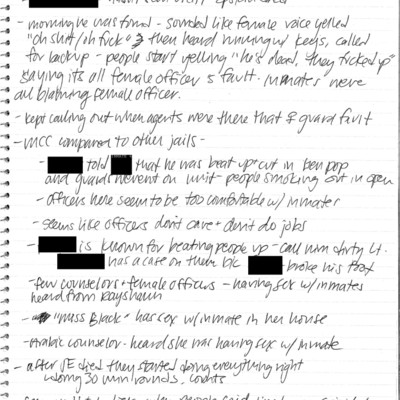 - morning he was found - sounded like female voice yelled
"oh shit/oh fuck" & then heard running and keys, called
for backup - people start yelling "he's dead, they fucked up"
saying its all female officer's fault. Inmates were
all blaming female officer.
- kept calling out when agents were there that ♀ guard fault
- MCC comparison to other jails -
- told that he was beat up & cut in gen pop
and guards weren't on unit - people smoking out in open
- officers here seem to be too comfortable w/ inmates
- seems like officers don't care & don't do jobs
- is known for beating people up - call him dirty Lt.
has a case on them b/c broke his
- few counselors + female officers - having sex w/ inmates
heard from Rayshawn
- "Miss Black" has sex w/ inmate in her house
- Arabic counselor - heard she was having sex w/ inmate
- after JE died they started doing everything right
doing 30 min rounds, counts